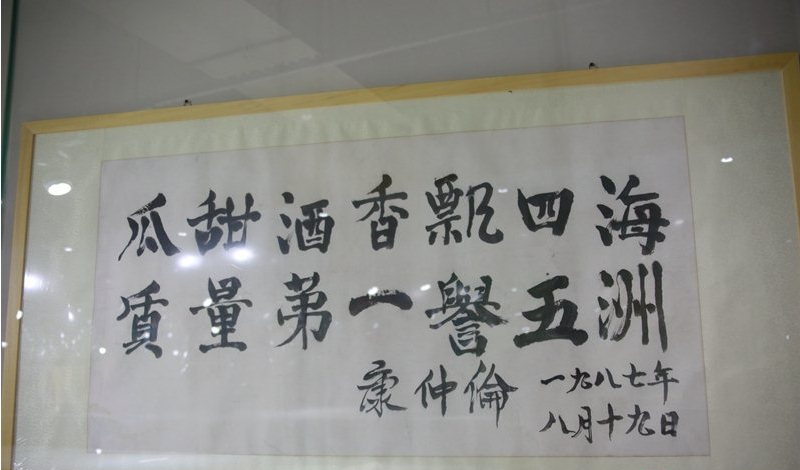 瓜甜酒香飘四海
质量第一誉五洲
康仲倫
一九八七年
八月十九日